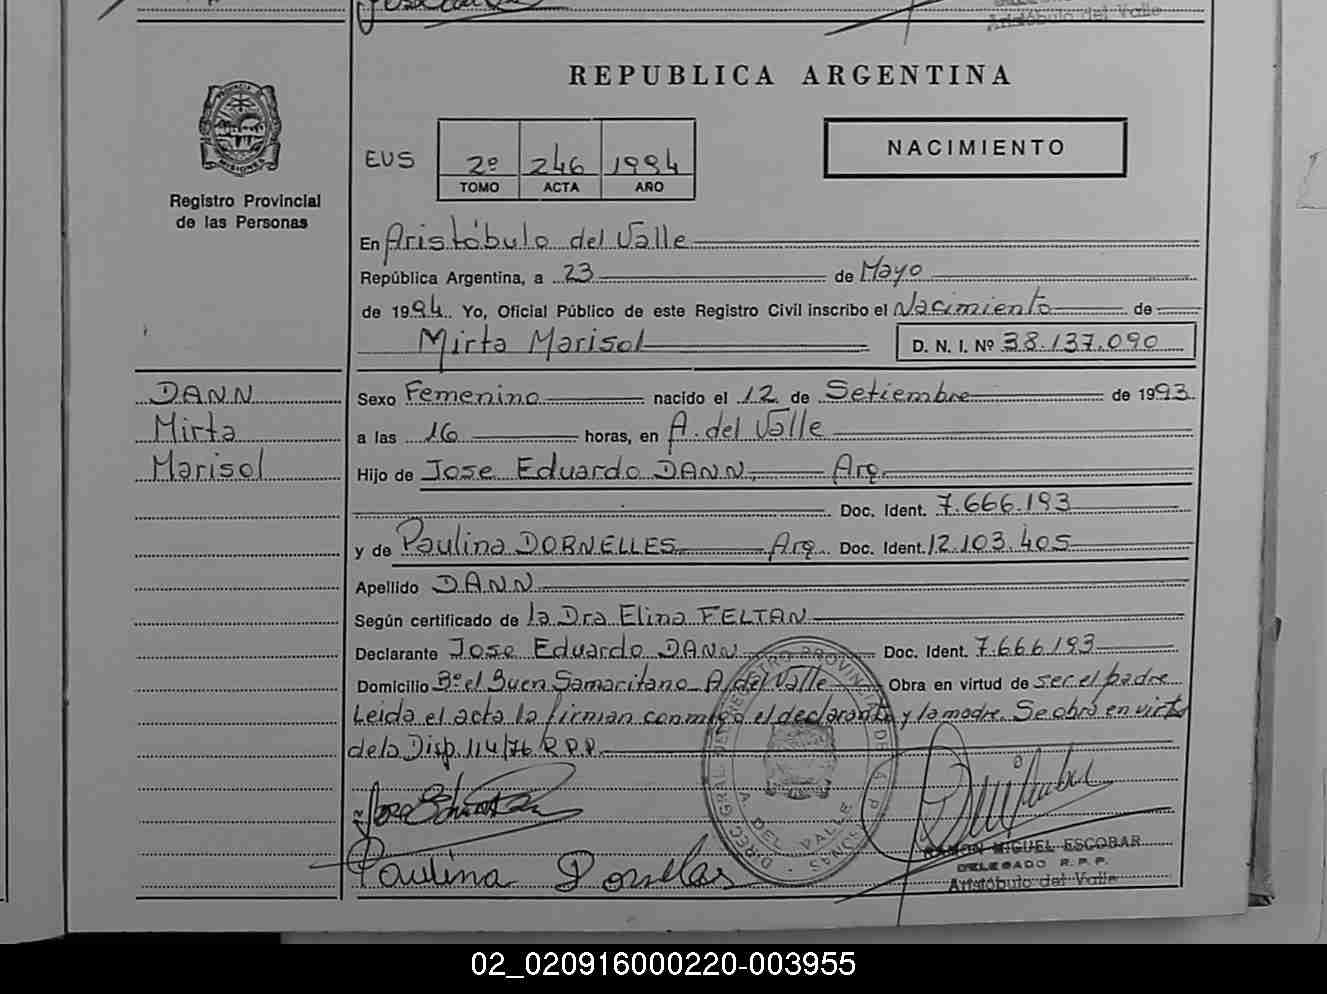 Aristóbulo del Valle
REPUBLICA ARGENTINA
PROVINCIA DE MISIONES
Registro Provincial
de las Personas
EUS
2º 246 1994
TOMO ACTA AÑO
NACIMIENTO
En Aristóbulo del Valle
República Argentina, a 23 de Mayo
de 1994. Yo, Oficial Público de este Registro Civil inscribo el Nacimiento de
Mirta Marisol D. N. I. Nº 38.137.090
DANN
Mirta
Marisol
Sexo Femenino nacido el 12 de Setiembre de 1993
a las 16 horas, en A. del Valle
Hijo de Jose Eduardo DANN, Arg.
Doc. Ident. 7.666.193
y de Paulina DORNELLES Arg. Doc. Ident. 12.103.405
Apellido DANN
Según certificado de la Dra Elina FELTAN
Declarante Jose Eduardo DANN Doc. Ident. 7.666.193
Domicilio Bº el Buen Samaritano A. del Valle Obra en virtud de ser el padre
Leida el acta la firman conmigo el declarante y la madre. Se obra en virtud
de la Disp. 114/76 R.P.P.
A. DEL VALLE
Paulina Dornelles
RAMON MIGUEL ESCOBAR
DELEGADO R. P. P.
Aristóbulo del Valle
02_020916000220-003955